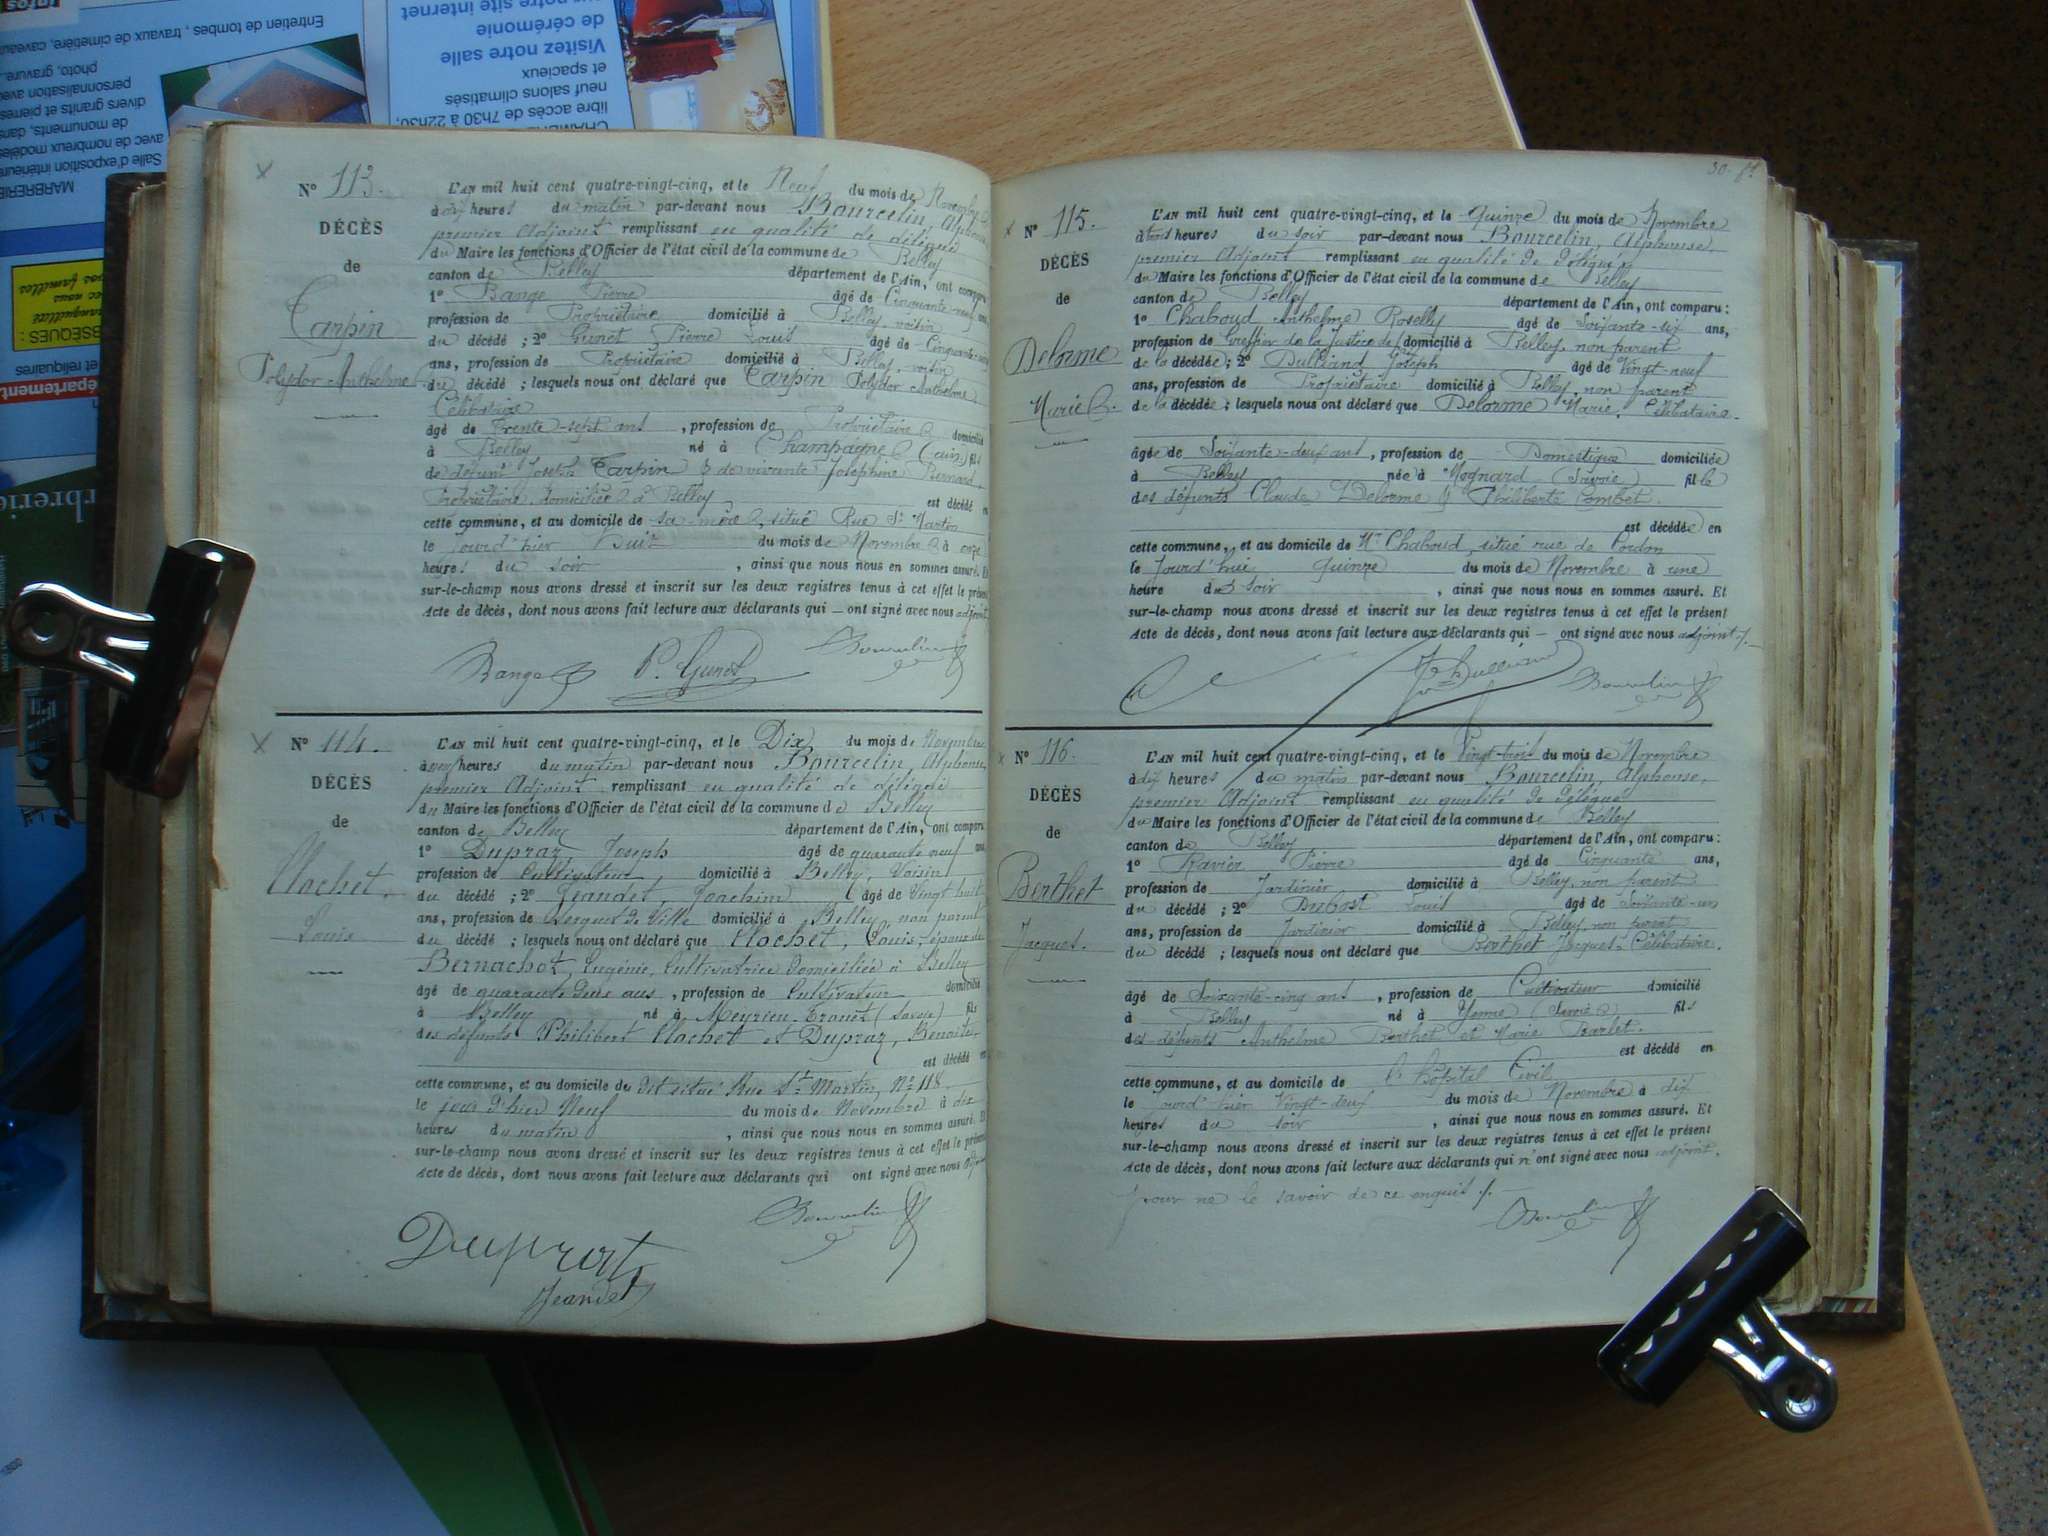 N° 113.
DÉCÈS
de
Tarpin
Polydor Anthelme
L'AN mil huit cent quatre-vingt-cinq, et le Neuf du mois de Novembre
à dix heures du matin par-devant nous Bourcelin, Alphonse
premier Adjoint remplissant en qualité de délégué
du Maire les fonctions d'Officier de l'état civil de la commune de Belley
canton de Belley département de l'Ain, ont comparu
1° Bange Pierre âgé de Cinquante-neuf ans,
profession de Propriétaire domicilié à Belley, voisin
du décédé ; 2° Gunet Pierre Louis âgé de Cinquante
ans, profession de Propriétaire domicilié à Belley, voisin
du décédé ; lesquels nous ont déclaré que Tarpin Polydor Anthelme,
Célibataire
âgé de Trente-sept ans, profession de Propriétaire domicilié
à Belley né à Champagne (ain) fils
de défunt Joseph Tarpin & de vivante Joséphine Bernard,
Propriétaire, domiciliée à Belley est décédé en
cette commune, et au domicile de sa mère, situé Rue St Martin
le jourd'hier Huit du mois de Novembre à onze
heures du soir, ainsi que nous nous en sommes assuré. Et
sur-le-champ nous avons dressé et inscrit sur les deux registres tenus à cet effet le présent
Acte de décès, dont nous avons fait lecture aux déclarants qui — ont signé avec nous adjoint
Bange P. Gunet Bourcelin
N° 114.
DÉCÈS
de
Clochet
Louis
L'AN mil huit cent quatre-vingt-cinq, et le Dix du mois de Novembre
à neuf heures du matin par-devant nous Bourcelin, Alphonse,
premier Adjoint remplissant en qualité de délégué
du Maire les fonctions d'Officier de l'état civil de la commune de Belley
canton de Belley département de l'Ain, ont comparu
1° Dupraz, Joseph âgé de quarante neuf ans
profession de Cultivateur, domicilié à Belley, Voisin
du décédé ; 2° Jeandet, Joachim âgé de Vingt huit
ans, profession de Sergent de Ville domicilié à Belley non parent
du décédé ; lesquels nous ont déclaré que Clochet, Louis, époux de
Bernachot, Eugénie, Cultivatrice domiciliée à Belley
âgé de quarante deux ans, profession de Cultivateur domicilié
à Belley né à Meyrieu-Trouet (Savoie) fils
des défunts Philibert Clochet et Dupraz, Benoite
est décédé en
cette commune, et au domicile de dit situé Rue St Martin, N° 118
le jour d'hier Neuf du mois de Novembre à dix
heures du matin, ainsi que nous nous en sommes assuré. Et
sur-le-champ nous avons dressé et inscrit sur les deux registres tenus à cet effet le présent
Acte de décès, dont nous avons fait lecture aux déclarants qui ont signé avec nous adjoint
Bourcelin
Duprat
Jeandet
N° 115.
DÉCÈS
de
Delorme
Marie
L'AN mil huit cent quatre-vingt-cinq, et le quinze du mois de Novembre
à trois heures du soir par-devant nous Bourcelin, Alphonse
premier Adjoint remplissant en qualité de délégué
du Maire les fonctions d'Officier de l'état civil de la commune de Belley
canton de Belley département de l'Ain, ont comparu :
1° Chaboud Anthelme Roselly âgé de Soixante-six ans,
profession de Greffier de la Justice de domicilié à Belley, non parent
de la décédée ; 2° Dulliand Joseph âgé de Vingt-neuf
ans, profession de Propriétaire domicilié à Belley, non parent
de la décédée ; lesquels nous ont déclaré que Delorme Marie, Célibataire.
âgée de Soixante-deux ans, profession de Domestique domiciliée
à Belley née à Mognard (Savoie) fille
des défunts Claude Delorme & Philiberte Combet.
est décédée en
cette commune, et au domicile de Mr Chaboud, situé rue de Cordon
le jourd'hui quinze du mois de Novembre à une
heure du soir, ainsi que nous nous en sommes assuré. Et
sur-le-champ nous avons dressé et inscrit sur les deux registres tenus à cet effet le présent
Acte de décès, dont nous avons fait lecture aux déclarants qui — ont signé avec nous adjoint ./.
Jh Dulliand Bourcelin
N° 116.
DÉCÈS
de
Berthet
Jacques.
L'AN mil huit cent quatre-vingt-cinq, et le Vingt-trois du mois de Novembre
à dix heures du matin par-devant nous Bourcelin, Alphonse,
premier Adjoint remplissant en qualité de délégué
du Maire les fonctions d'Officier de l'état civil de la commune de Belley
canton de Belley département de l'Ain, ont comparu :
1° Ravier Pierre âgé de Cinquante ans,
profession de Jardinier domicilié à Belley, non parent
du décédé ; 2° Dubost Louis âgé de Soixante-un
ans, profession de Jardinier domicilié à Belley, non parent
du décédé ; lesquels nous ont déclaré que Berthet Jacques, Célibataire.
âgé de Soixante-cinq ans, profession de Cultivateur domicilié
à Belley né à Yenne (Savoie) fils
des défunts Anthelme Berthet et Marie Barlet.
est décédé en
cette commune, et au domicile de l'hôpital Civil
le jourd'hier Vingt-deux du mois de Novembre à dix
heures du soir, ainsi que nous nous en sommes assuré. Et
sur-le-champ nous avons dressé et inscrit sur les deux registres tenus à cet effet le présent
Acte de décès, dont nous avons fait lecture aux déclarants qui n'ont signé avec nous adjoint.
pour ne le savoir de ce enquis ./.
Bourcelin
Entretien de tombes, travaux de cimetière, caveaux
photo, gravure
personnalisation avec
divers granits et pierres
de monuments, dans
avec de nombreux modèles
Salle d'exposition intérieure
MARBRERIE
libre accès de 7h30 à 22h30,
neuf salons climatisés
et spacieux
Visitez notre salle
de cérémonie
notre site internet